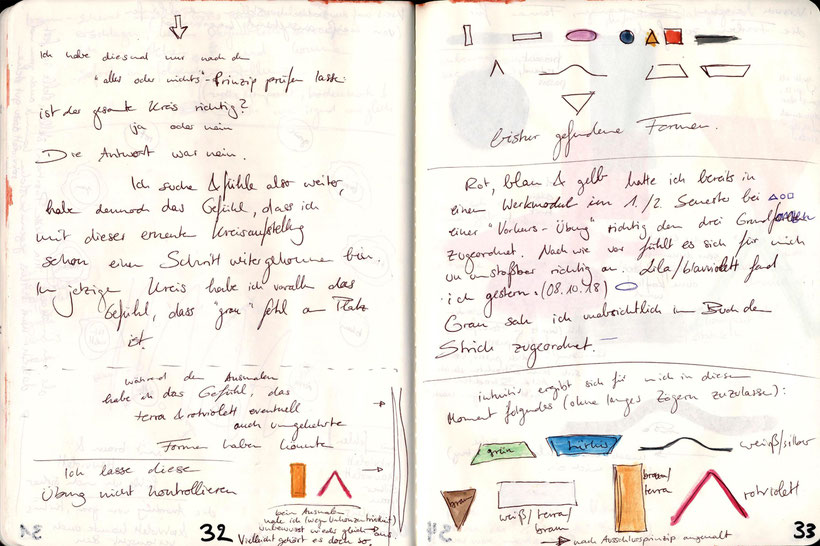 Ich habe diesmal nur nach dem
"alles oder nichts"-Prinzip prüfen lassen:
ist der gesamte Kreis richtig?
ja oder nein
Die Antwort war nein.
Ich suche & fühle also weiter,
habe dennoch das Gefühl, dass ich
mit dieser erneuten Kreisaufstellung
schon einen Schritt weitergekommen bin.
Im jetzigen Kreis habe ich vorallem das
Gefühl, dass "grau" fehl am Platz
ist.
während dem Ausmalen
habe ich das Gefühl, das
terra & rotviolett eventuell
auch umgekehrte
Formen haben könnte
Ich lasse diese
Übung nicht kontrollieren
beim Ausmalen
habe ich (wegen Unkonzentriertheit)
unbewusst wieder gleich aus.
Vielleicht gehört es doch so.
31
32
bisher gefundene Formen.
Rot, blau & gelb hatte ich bereits in
einem Werkmodul im 1./2. Semester bei
einer "Vorkurs-Übung" richtig den drei Grundformen
zugeordnet. Nach wie vor fühlt es sich für mich
unumstoßbar richtig an. Lila/blauviolett fand
ich gestern. (08.10.18)
Grau sah ich unabsichtlich im Buch dem
Strich zugeordnet.
intuitiv ergibt sich für mich in diesem
Moment folgendes (ohne langes Zögern zuzulassen):
grün
türkis
weiß/silber
braun
weiß/terra/
braun
braun/
terra
rotviolett
nach Ausschlussprinzip angemalt
34
33